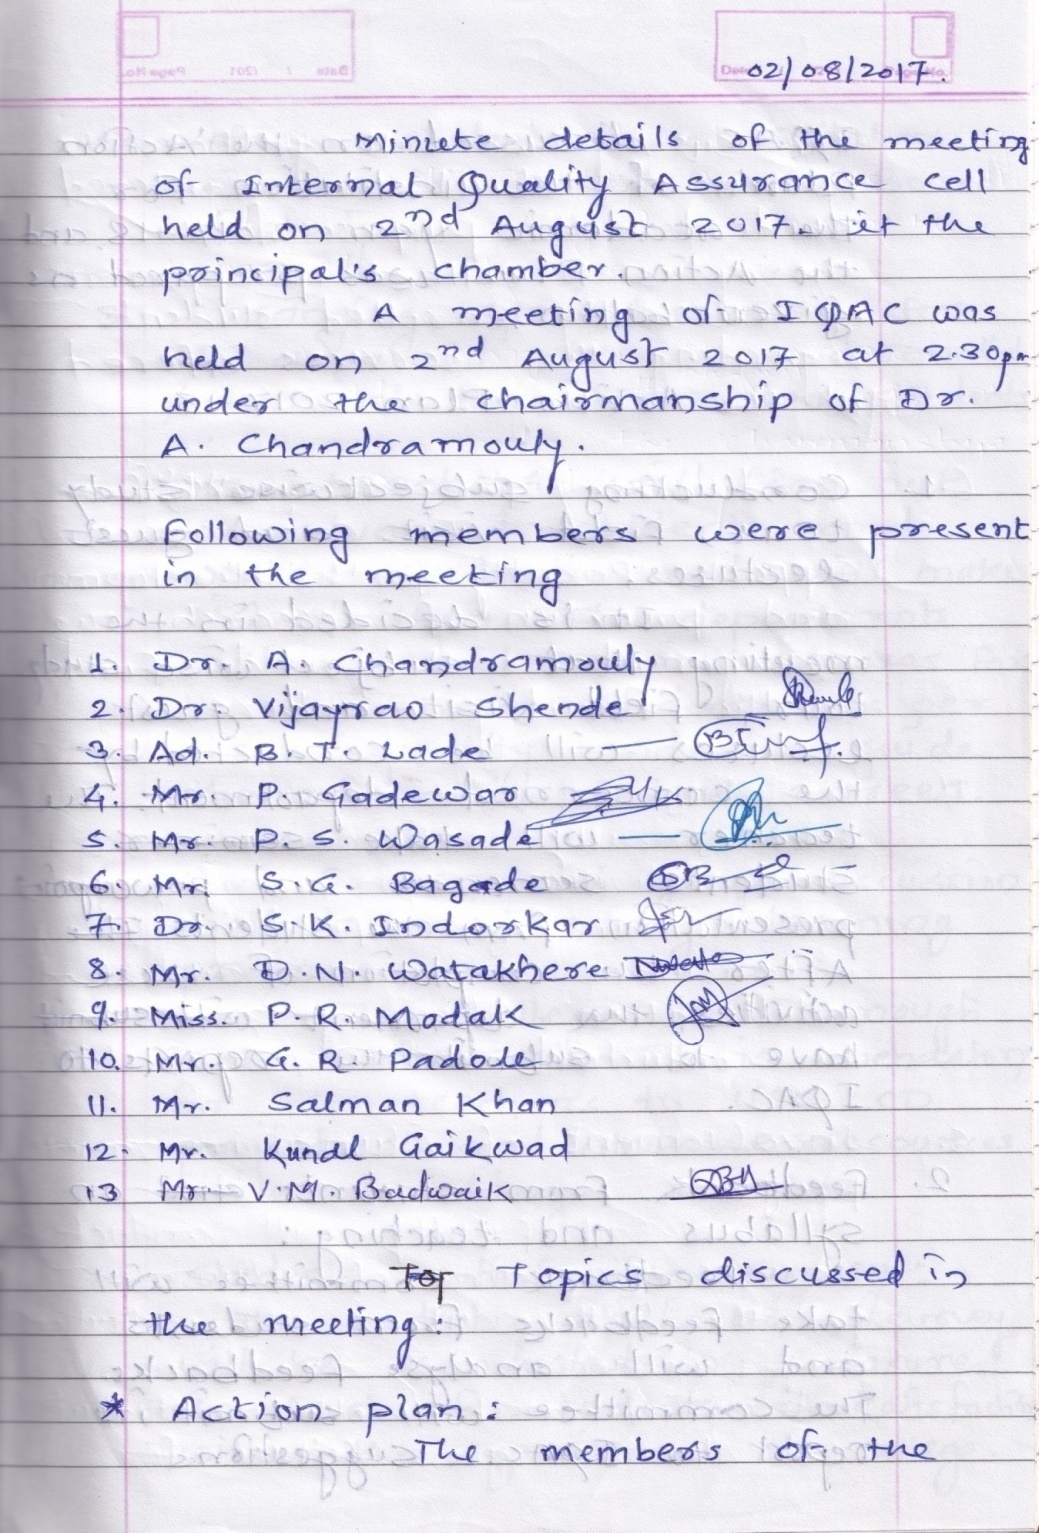 02/08/2017.
Minute details of the meeting
of Internal Quality Assurance cell
held on 2nd August 2017. it the
principal's chamber.
A meeting of IQAC was
held on 2nd August 2017 at 2.30pm
under the chairmanship of Dr.
A. Chandramouly.
Following members were present
in the meeting
1. Dr. A. Chandramouly
2. Dr. Vijayrao Shende
3. Ad. B. T. Lade
4. Mr. P. Gadewar
5. Mr. P. S. Wasade
6. Mr. S.G. Bagade
7. Dr. S.K. Indorkar
8. Mr. D.N. Watakhere
9. Miss. P.R. Modak
10. Mr. G.R. Padole
11. Mr. Salman Khan
12. Mr. Kunal Gaikwad
13 Mr. V.M. Badwaik
Topics discussed in
the meeting:
* Action plan:
The members of the